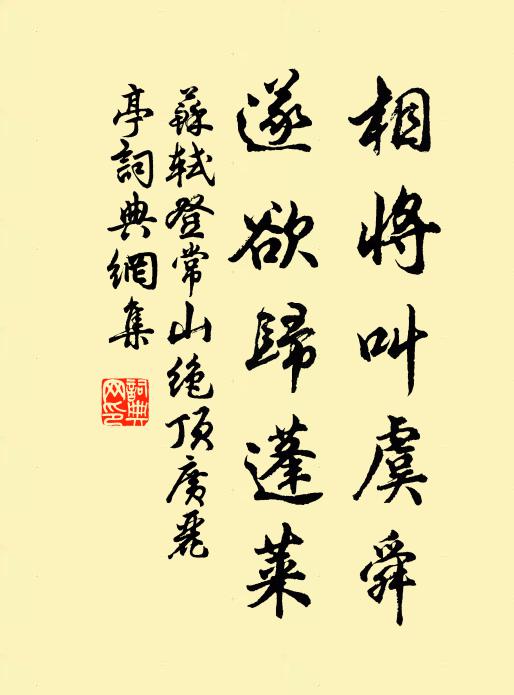 相將叫虞舜
遂欲歸蓬萊
蘇軾登常山絕頂廣麗
亭詞典網集
詞典
网印